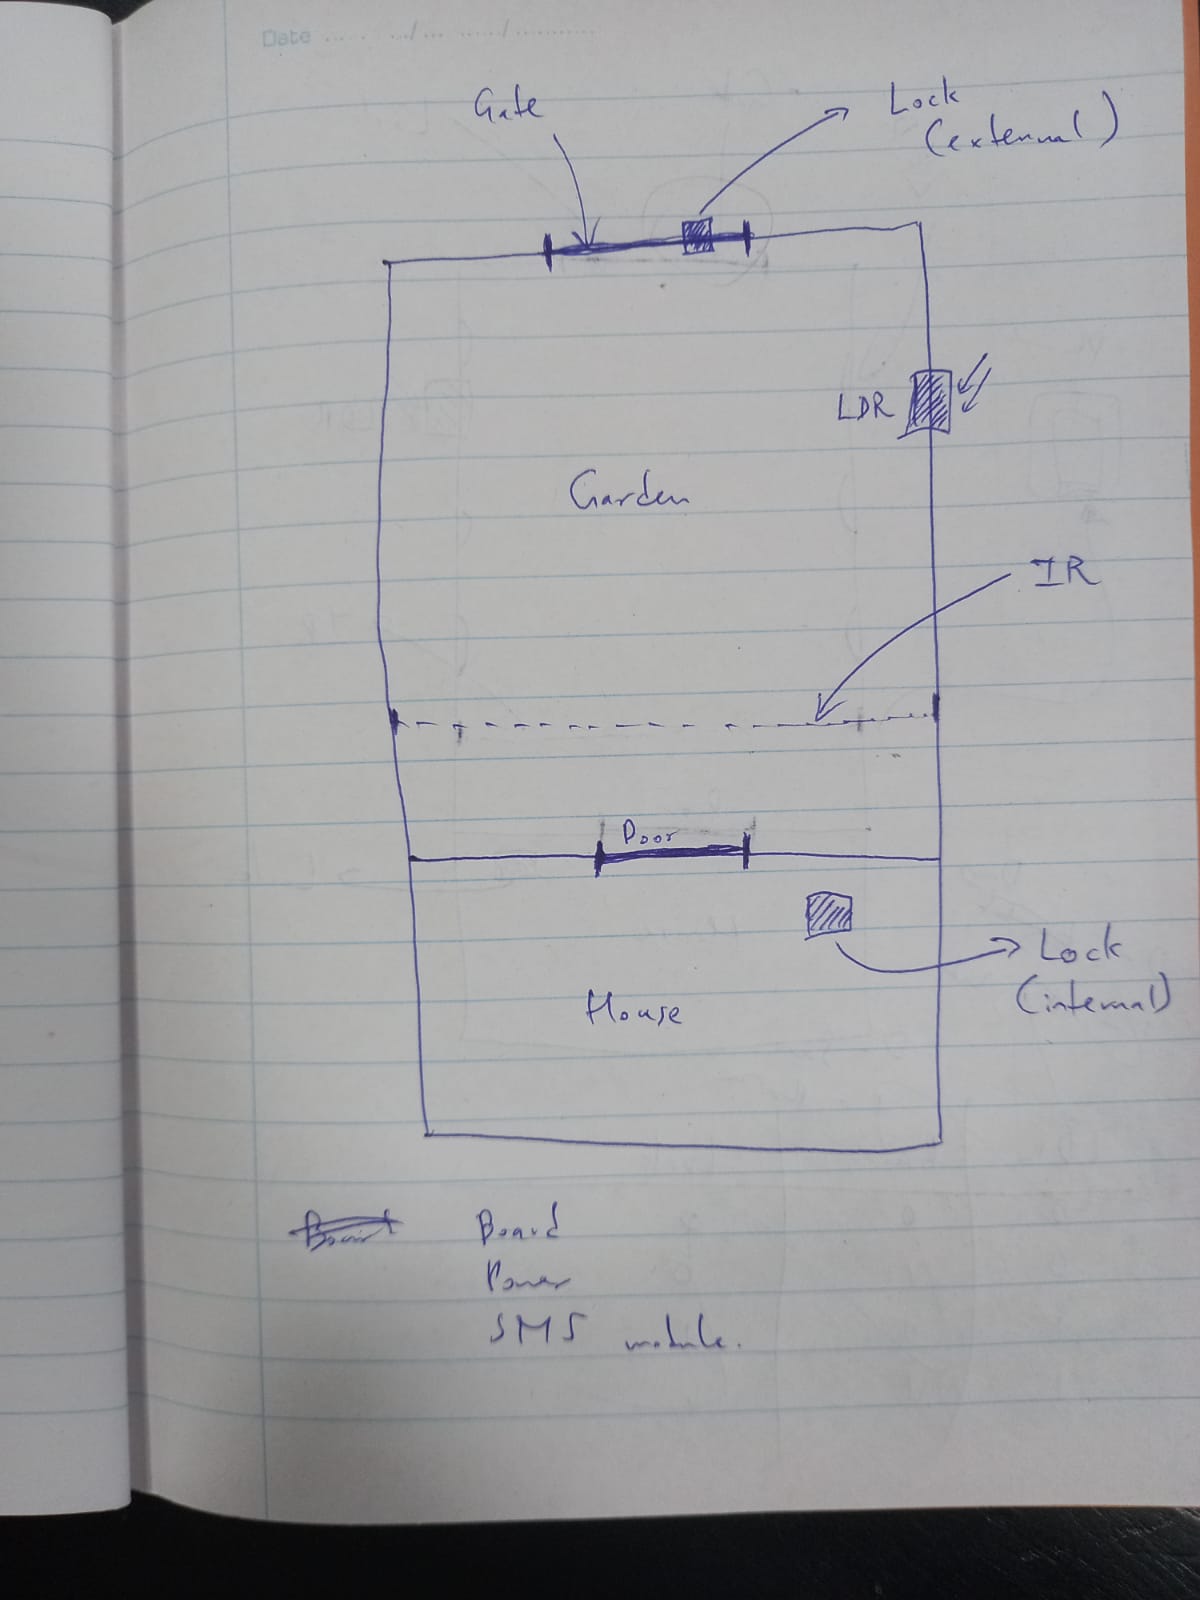 Date
Gate
Lock
(external)
LDR
Garden
IR
Door
Lock
(internal)
House
Board
Power
SMS module.